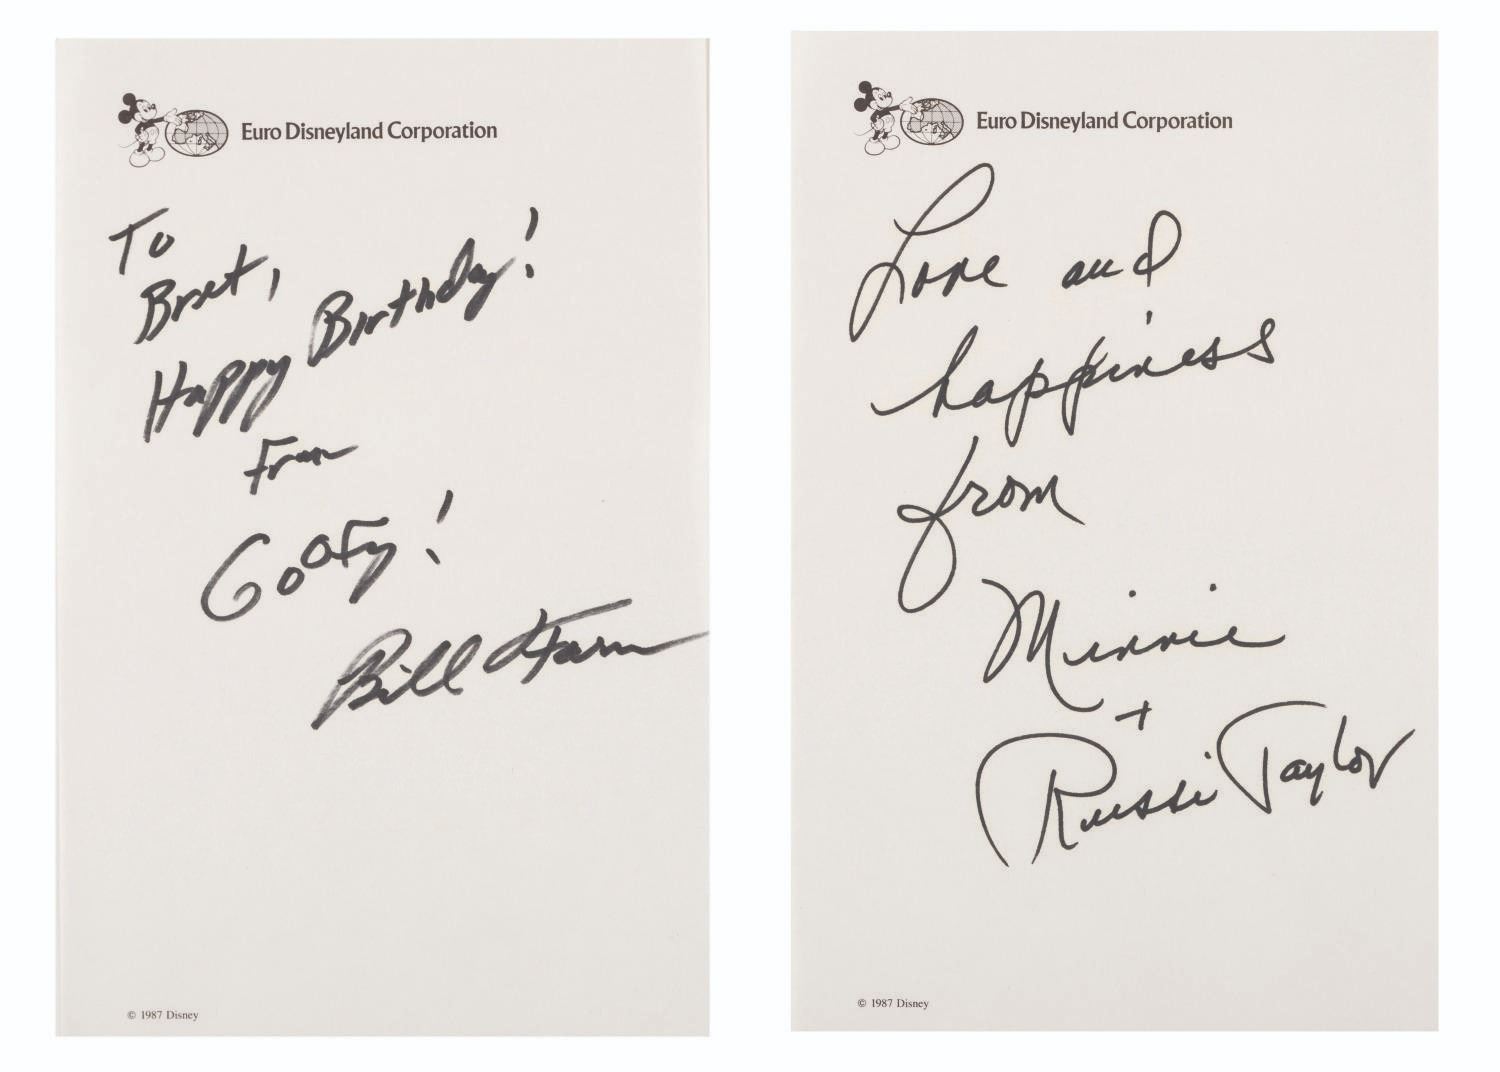 Euro Disneyland Corporation
To
Bret,
Happy Birthday!
From
Goofy!
Bill Farmer
© 1987 Disney
Euro Disneyland Corporation
Love and
happiness
from
Minnie
+
Russi Taylor
© 1987 Disney